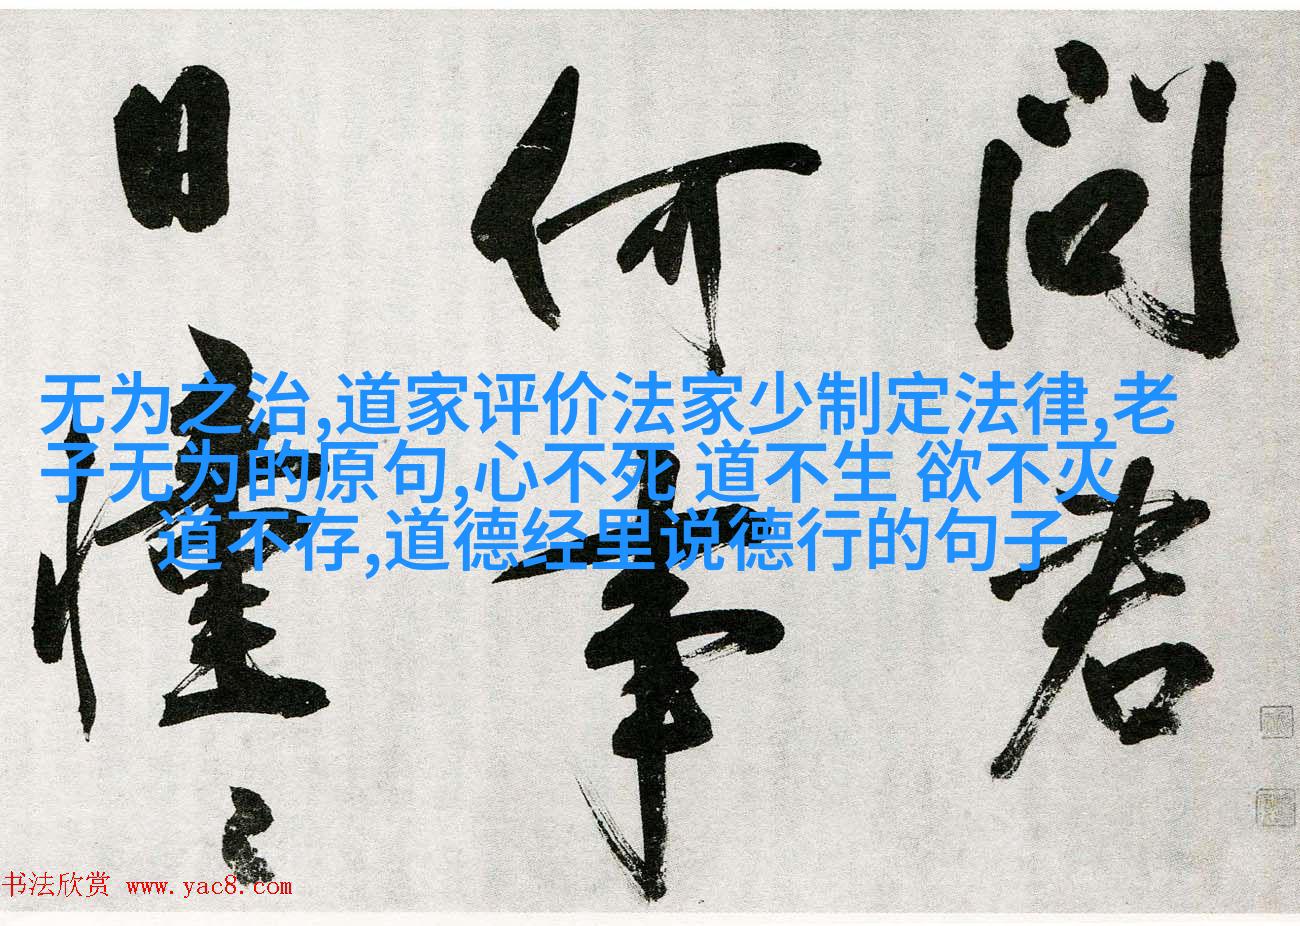 问君
何事
日憧〻
无为之治,道家评价法家少制定法律,老
子无为的原句,心不死 道不生 欲不灭
道不存,道德经里说德行的句子
书法欣赏 www.yac8.com